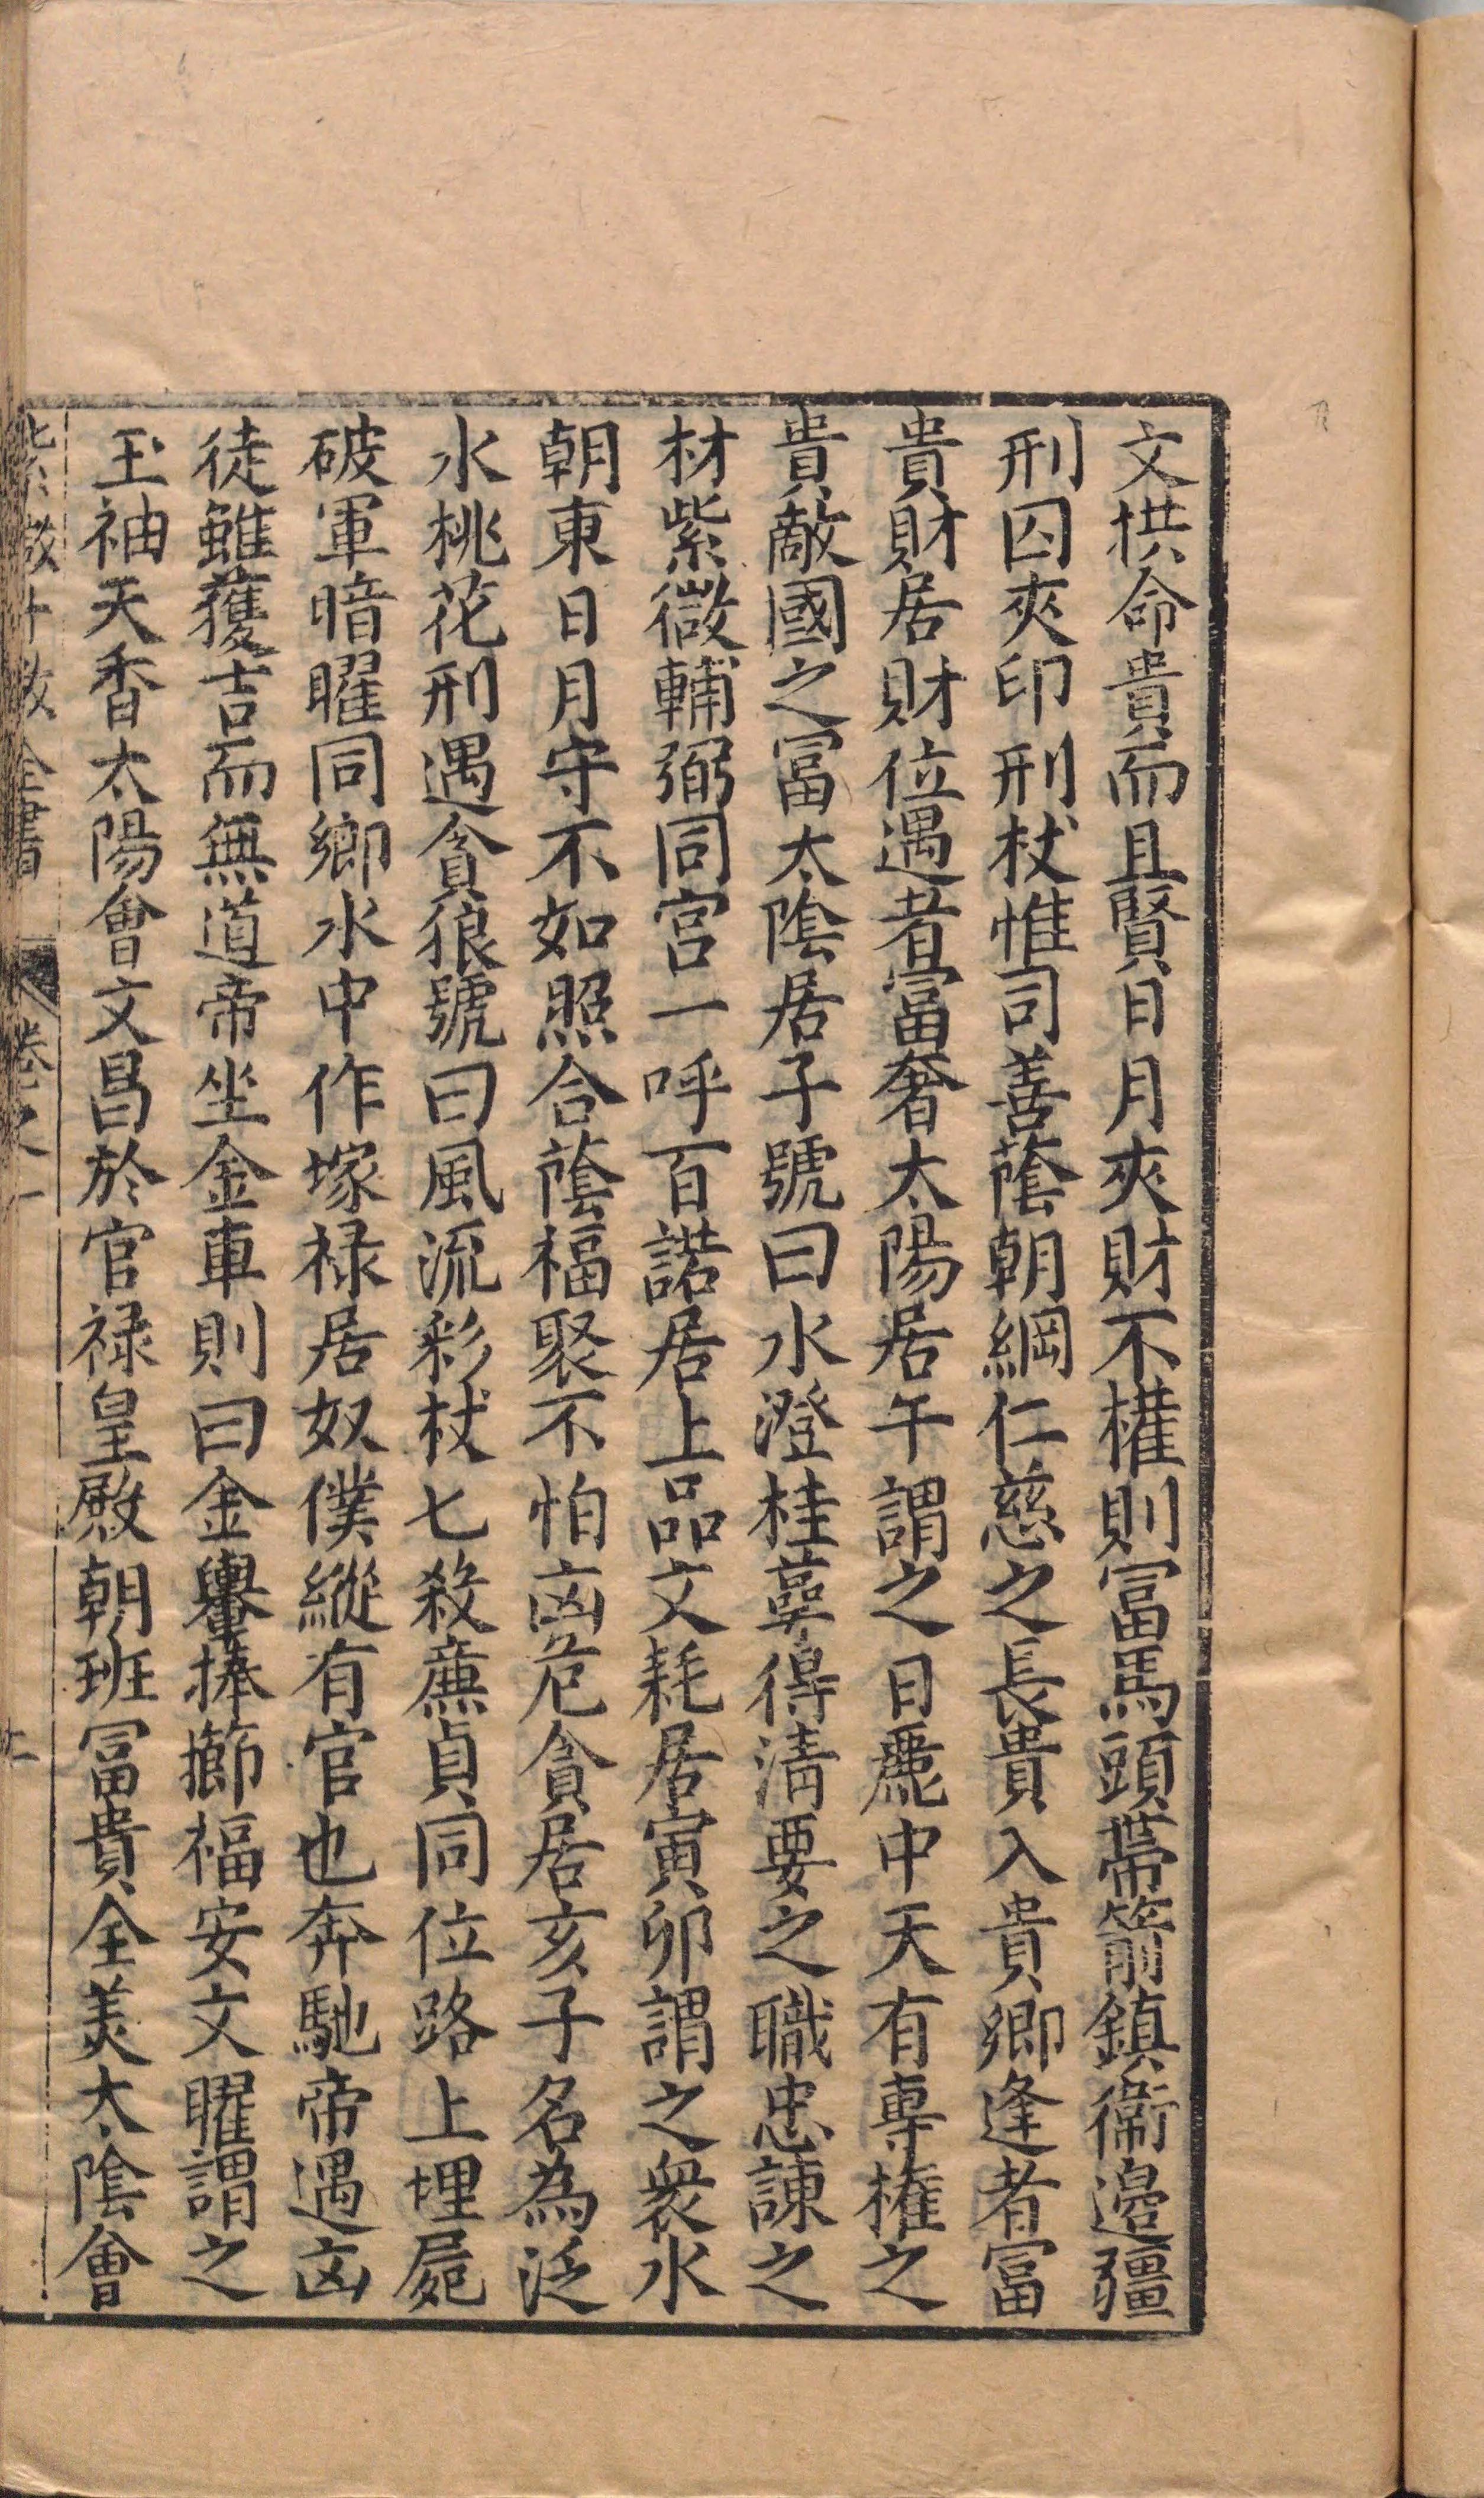 文拱命貴而且賢日月夾財不權則富馬頭帶箭鎮衛邊疆
刑囚夾印刑杖惟司善蔭朝綱仁慈之長貴入貴卿逢者富
貴財居財位遇者富奢太陽居午謂之日麗中天有專權之
貴敵國之富太陰居子號曰水澄桂蕚得清要之職忠諫之
材紫微輔弼同宮一呼百諾居上品文耗居寅卯謂之衆水
朝東日月守不如照合蔭福聚不怕凶危貪居亥子名為泛
水桃花刑遇貪狼號曰風流彩杖七殺廉貞同位路上埋屍
破軍暗曜同鄉水中作塚禄居奴僕縱有官也奔馳帝遇凶
徒雖獲吉而無道帝坐金車則曰金轝捧擳福安文曜謂之
玉袖天香太陽會文昌於官禄皇殿朝班冨貴全美太陰會
紫微斗数全書 卷之一